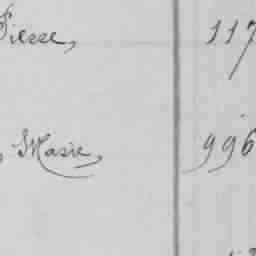 Pierre, 117
, Marie, 996